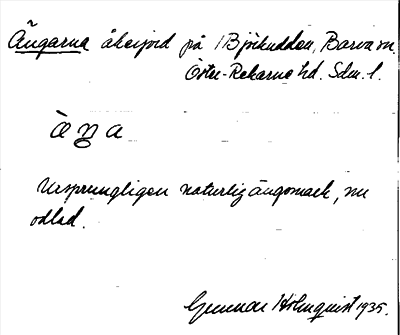 Ängarna åkerjord på Björkudden, Barva sn
Öster-Rekarne hd. Sdm. l.
àŋa
Ursprungligen naturlig ängsmark, nu
odlad.
Gunnar Holmquist 1935.